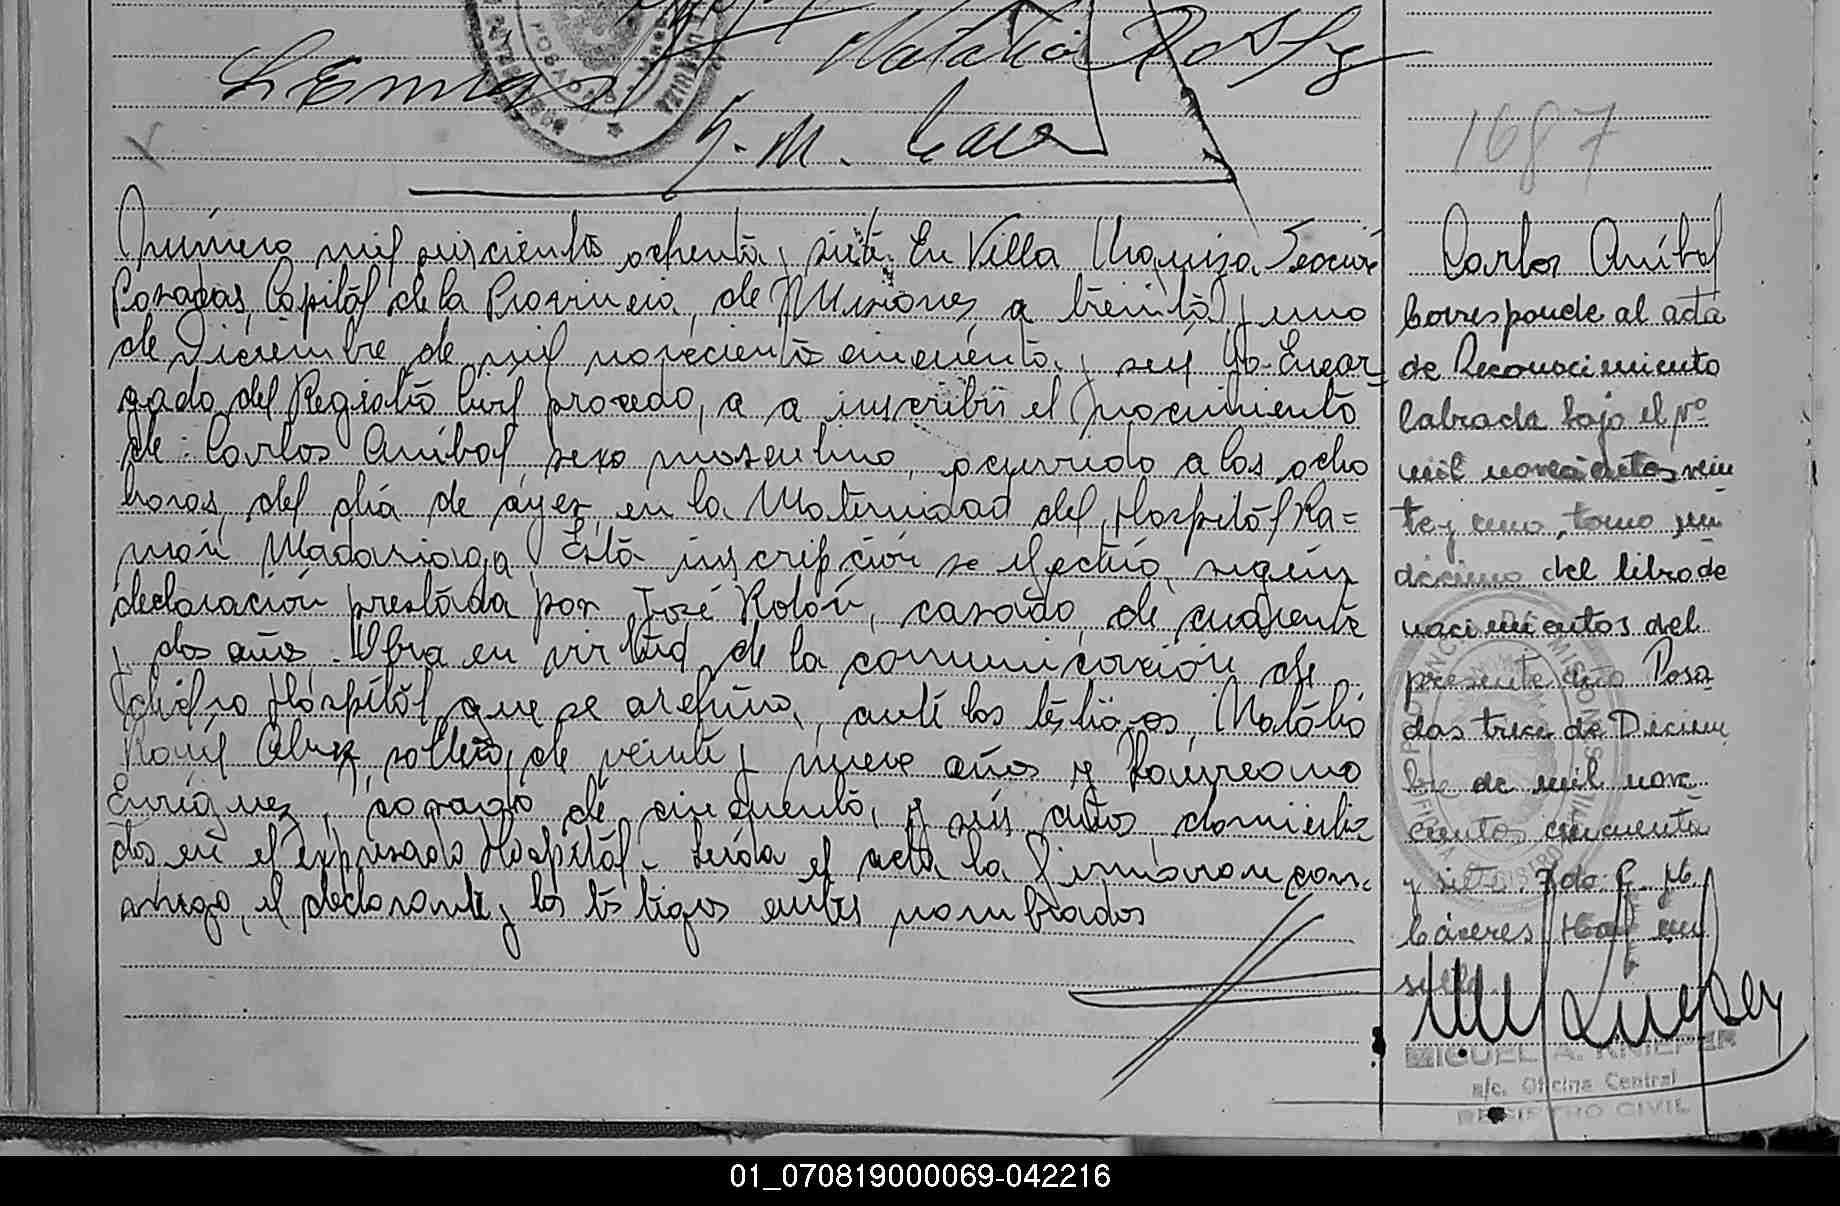 1687
Número mil seiscientos ochenta y siete. En Villa Urquiza
Posadas, Capital de la Provincia, de Misiones, a treinta y uno
de Diciembre de mil novecientos cincuenta y seis Yo Encar-
gado del Registro Civil procedo, a a inscribir el nacimiento
de: Carlos Aníbal, sexo masculino, ocurrido a las ocho
horas, del día de ayer, en la Maternidad del Hospital Ra=
món Madariaga. Esta inscripción se efectúa, según
declaración prestada por José Rolón, casado, de cuarenta
y dos años. Obra en virtud de la comunicación de
dicho Hospital que se archiva, ante los testigos, Natálio
Raúl soltero, de veinte y nueve años y Laureano
Enriquez, casado de cincuenta, y seis años domicilia
dos en el expresado Hospital. Leída el acta la firmaron con-
migo, el declarante y los testigos antes nombrados
Carlos Aníbal
Corresponde al acta
de Reconocimiento
labrada bajo el Nº
mil novecientos vein
te y uno, tomo
décimo del libro de
nacimientos del
presente año Posa
das trece de Diciem
bre de mil nove
cientos cincuenta
y siete. Fdo. G. M.
Cáceres Hay un
sello.
MIGUEL A. KNIEPER
a/c. Oficina Central
REGISTRO CIVIL
01_070819000069-042216